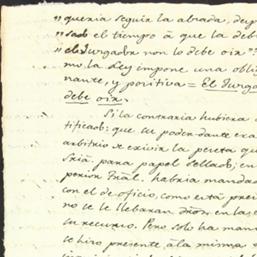 "queria seguir la alzada, despu
"sado el tiempo á que la deb
"el Juzgador non lo debe oir"
mo la Ley impone una obli
nante, y positiva = El Juzga
debe oir.
Si la contraria hubiera
tificado: que su poder dante era
arbitrio se exivir la peseta qu
para papel sellado; en
perior Tral. habria mandad
con el de oficio, como está prev
no se le llebaran dros. en las
su recurso. Pero solo ha man
se hizo presente á la misma